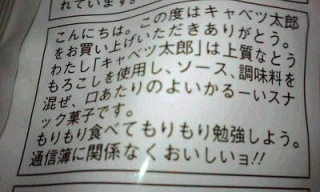 れています。
こんにちは。この度はキャベツ太郎
をお買い上げいただきありがとう。
わたし「キャベツ太郎」は上質なとう
もろこしを使用し、ソース、調味料を
混ぜ、口あたりのよいかるーいスナ
ック菓子です。
もりもり食べてもりもり勉強しよう。
通信簿に関係なくおいしいョ!!